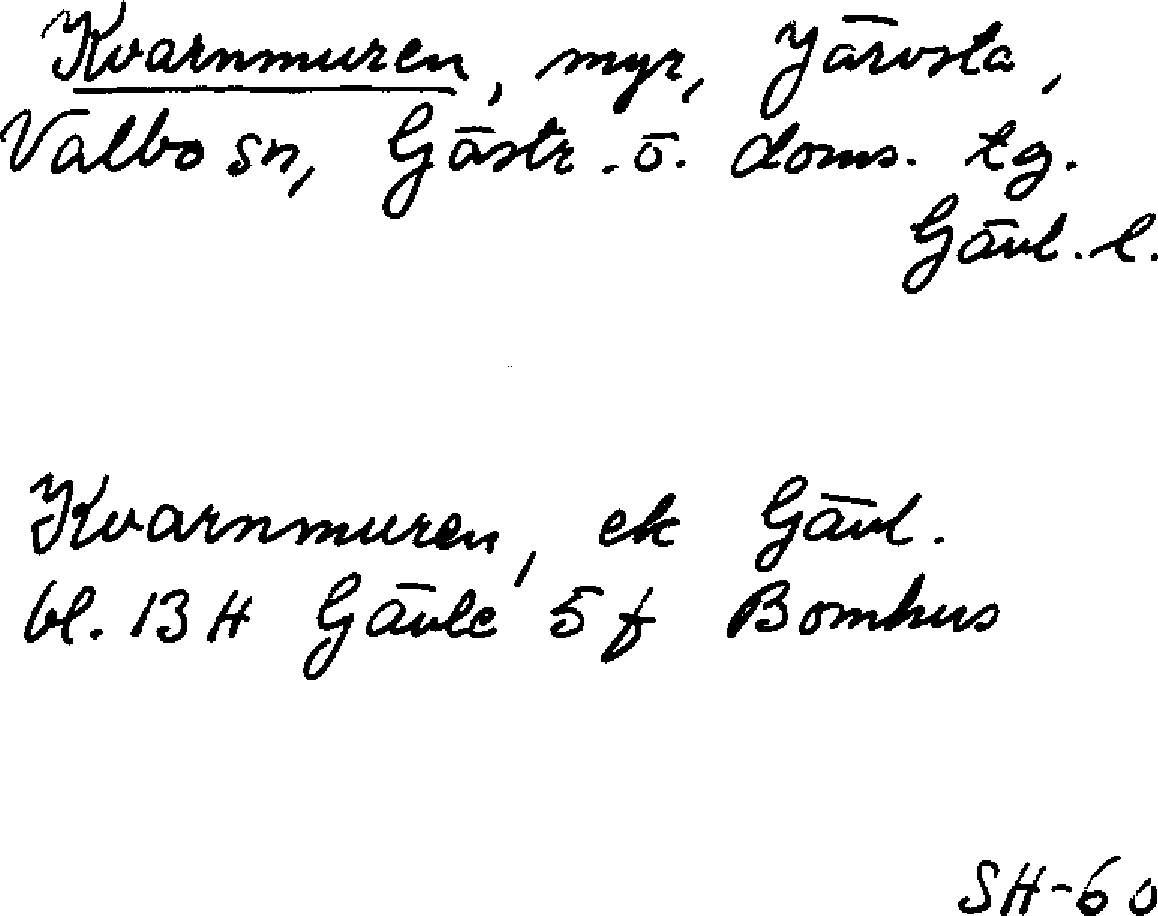 Kvarnmuren, myr, Järvsta,
Valbo sn, Gästr. ö. doms. tg.
Gävl. l.
Kvarnmuren, ek Gävl.
bl. 13 H Gävle 5 f Bomhus
SH-60